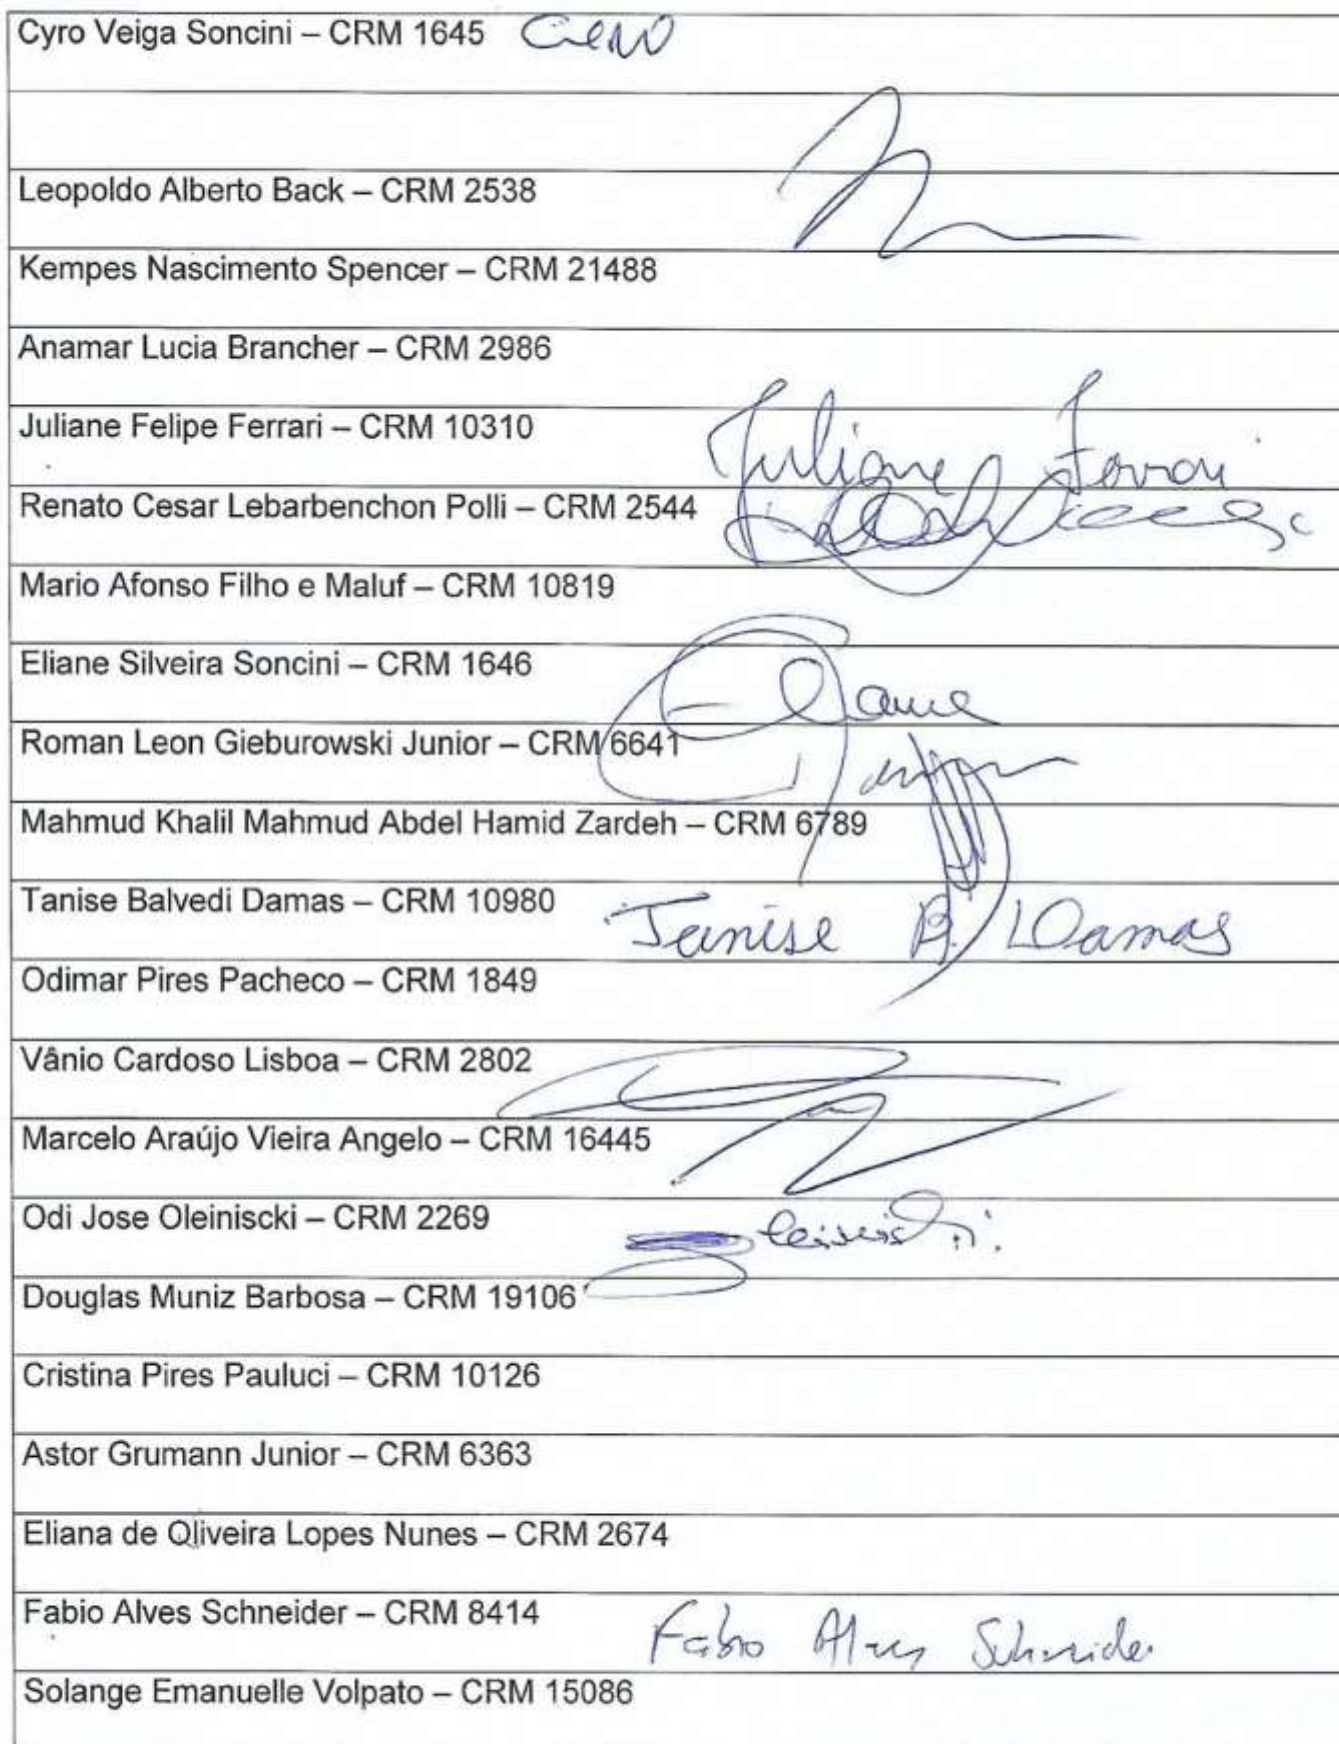 Cyro Veiga Soncini – CRM 1645
Leopoldo Alberto Back – CRM 2538
Kempes Nascimento Spencer – CRM 21488
Anamar Lucia Brancher – CRM 2986
Juliane Felipe Ferrari – CRM 10310 Juliane Ferrari
Renato Cesar Lebarbenchon Polli – CRM 2544
Mario Afonso Filho e Maluf – CRM 10819
Eliane Silveira Soncini – CRM 1646 Eliane
Roman Leon Gieburowski Junior – CRM 6641
Mahmud Khalil Mahmud Abdel Hamid Zardeh – CRM 6789
Tanise Balvedi Damas – CRM 10980 Tanise B. Damas
Odimar Pires Pacheco – CRM 1849
Vânio Cardoso Lisboa – CRM 2802
Marcelo Araújo Vieira Angelo – CRM 16445
Odi Jose Oleiniscki – CRM 2269
Douglas Muniz Barbosa – CRM 19106
Cristina Pires Pauluci – CRM 10126
Astor Grumann Junior – CRM 6363
Eliana de Oliveira Lopes Nunes – CRM 2674
Fabio Alves Schneider – CRM 8414 Fabio Alves Schneider
Solange Emanuelle Volpato – CRM 15086